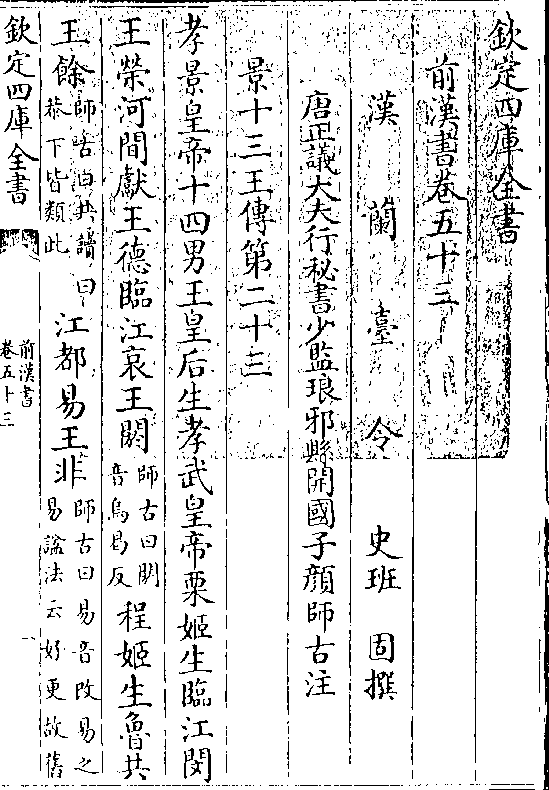 欽定四庫全書
前漢書卷五十三
漢蘭臺令史班固撰
唐正議大夫行秘書少監琅邪縣開國子顔師古注
景十三王傳第二十三
孝景皇帝十四男王皇后生孝武皇帝栗姬生臨江閔
王榮河間獻王德臨江哀王閼師古曰閼音烏曷反程姬生魯共
王餘師古曰共讀曰恭下皆類此江都易王非師古曰易音改易之易諡法云好更故舊
欽定四庫全書
前漢書
卷五十三
一